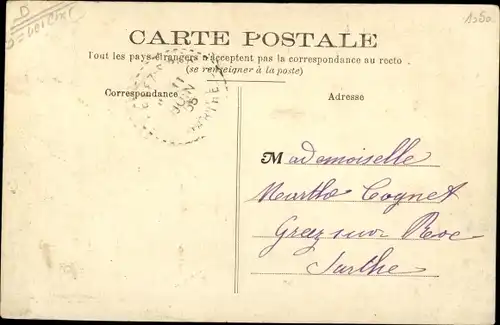 CARTE POSTALE
Tout les pays étrangers n'acceptent pas la correspondance au recto
(se renseigner à la poste)
Correspondance
Adresse
11
JUIN
Mademoiselle
Marthe Cognet
Greez sur Roc
Sarthe